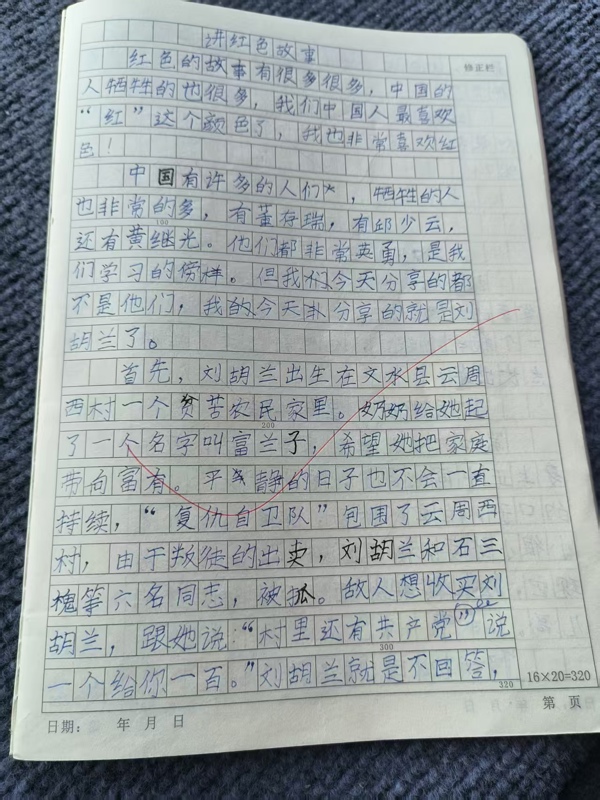 讲红色故事
修正栏
红色的故事有很多很多，中国的
人牺牲的也很多，我们中国人最喜欢
“红”这个颜色了，我也非常喜欢红
色！
中国有许多的人们，牺牲的人
也非常的多，有董存瑞，有邱少云，
100
还有黄继光。他们都非常英勇，是我
们学习的傍样。但我们今天分享的都
不是他们，我的今天分享的就是刘
胡兰了。
首先，刘胡兰出生在文水县云周
西村一个贫苦农民家里。奶奶给她起
200
了一个名字叫富兰子，希望她把家庭
带向富有。平静的日子也不会一直
持续，“复仇自卫队”包围了云周西
村，由于叛徒的出卖，刘胡兰和石三
槐等六名同志，被抓。故人想收买刘
胡兰，跟她说：“村里还有共产党”说
300
一个给你一百。”刘胡兰就是不回答，
320
16×20=320
日期： 年 月 日
第 页